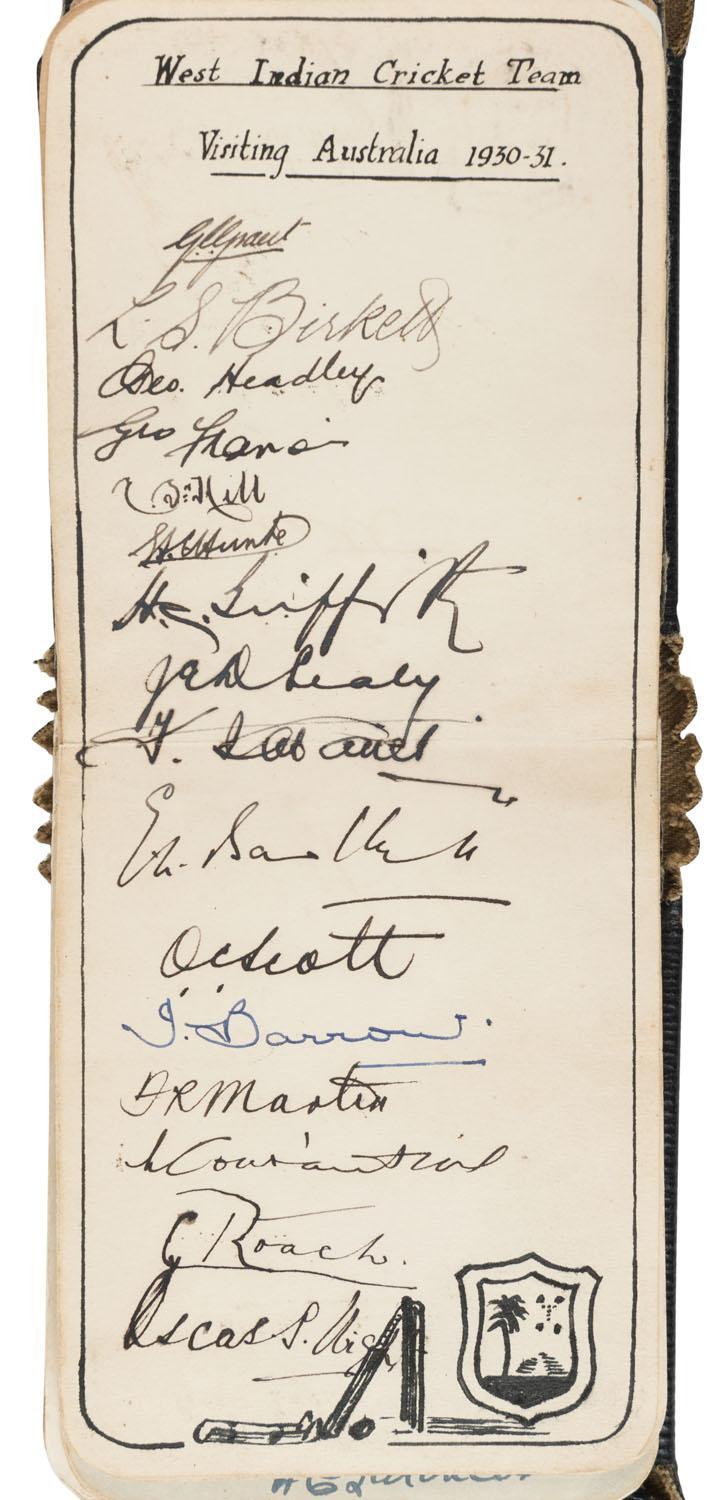 West Indian Cricket Team
Visiting Australia 1930-31.
G C Grant
L. S. Birkett
Geo. Headley
Geo Francis
Hill
H. C. Griffith
J E D Sealy
F.
E. L. Bartlett
O C Scott
I. Barrow.
F R Martin
L Constantine
C Roach.
Oscar S. Wight